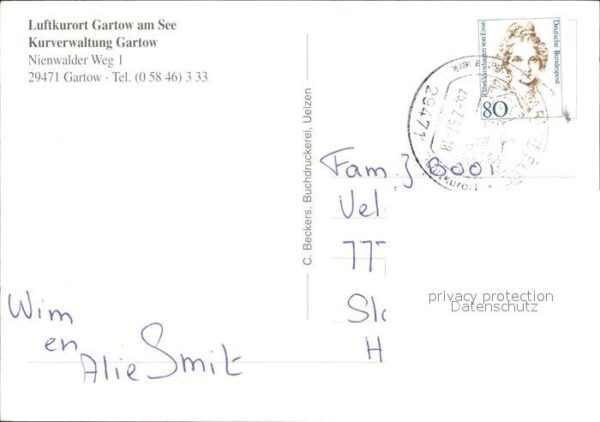 Luftkurort Gartow am See
Kurverwaltung Gartow
Nienwalder Weg 1
29471 Gartow - Tel. (0 58 46) 3 33
C. Beckers, Buchdruckerei, Uelzen
Deutsche Bundespost
Rahel Varnhagen von Ense
80
29471
Fam. J Booi
Vel
777
Slo
H
privacy protection
Datenschutz
Wim
en
Alie Smit